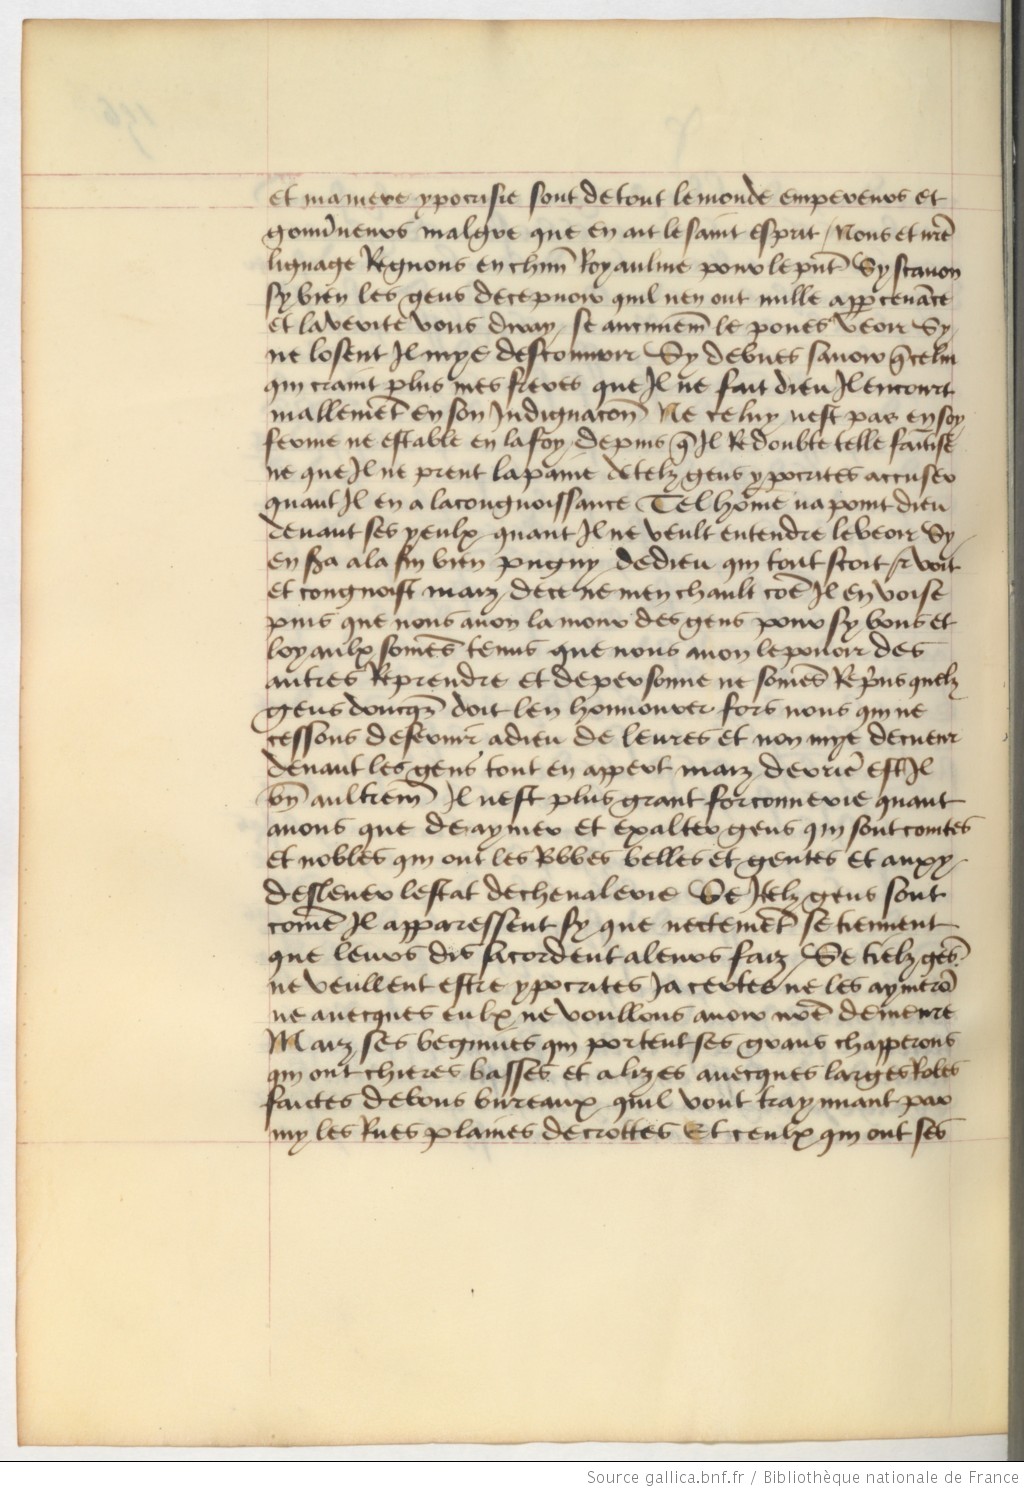 et ma mere ypocrisie sont de tout le monde empereurs et
gouu̅neurs malgre que en ait le saint esprit / Nous et nr̅e
lignage Regnons en chun̅ Royaulme pour le pn̅t Sy scauon
sy bien les gens decepuoir quil nen ont nulle appercenāce
et la verite vous diray se aucunem̅ le poues veoir Sy
ne losent Il mye descouurir Sy debues sauoir q̅ celui
qui craint plus mes freres que Il ne fait dieu Il encourt
mallemēt en son Indignacon̅ Ne celuy nest pas en soy
ferme ne estable en la foy depuis q̅ Il Redoubte telle faītise
ne que Il ne prent la paine de telz gens ypocrites accuser
quant Il en a la congnoissance Tel hōme na point dieu
deuant ses yeulx quant Il ne veult entendre le veoir Sy
en sȓa a la fin bien pugny de dieu qui tout scoit & voit
et congnoist maiz de ce ne men chault cōe Il en voise
puis que nous auon lamour des gens pour sy bons et
loyaulx somēs tenus que nous auon le pouoir des
autres Reprendre et de personne ne somēs Repr̅ns quelz
gens doncqz̅ doit len honnourer fors nous qui ne
cessons de seruir a dieu de leures et non mye de cueur
deuant les gens tout en appert maiz derriē est Il
bn̅ aultrem̅ Il nest plus grant forconnerie quant
auons que de aymer et exalter gens qui sont comtes
et nobles qui ont les Robbes belles et gentes et auxy
desleuer lestat de cheualerie Se Itelz gens sont
comē Il apparessent sy que nectemēt se tiennent
que leurs dis sacordent a leurs faiz / Se tielz gēs
ne veullent estre ypocrites Ja certes ne les aymerō
ne auecques eulx ne voullons auoir nr̅e demeure
Maiz ses beguines qui portent ses grans chapperons
qui ont chieres basses et alizes auecques larges Robes
faictes de bons bureaux quil vont traynnant par
my les Rues plaines de crottes Et ceulx qui ont ses